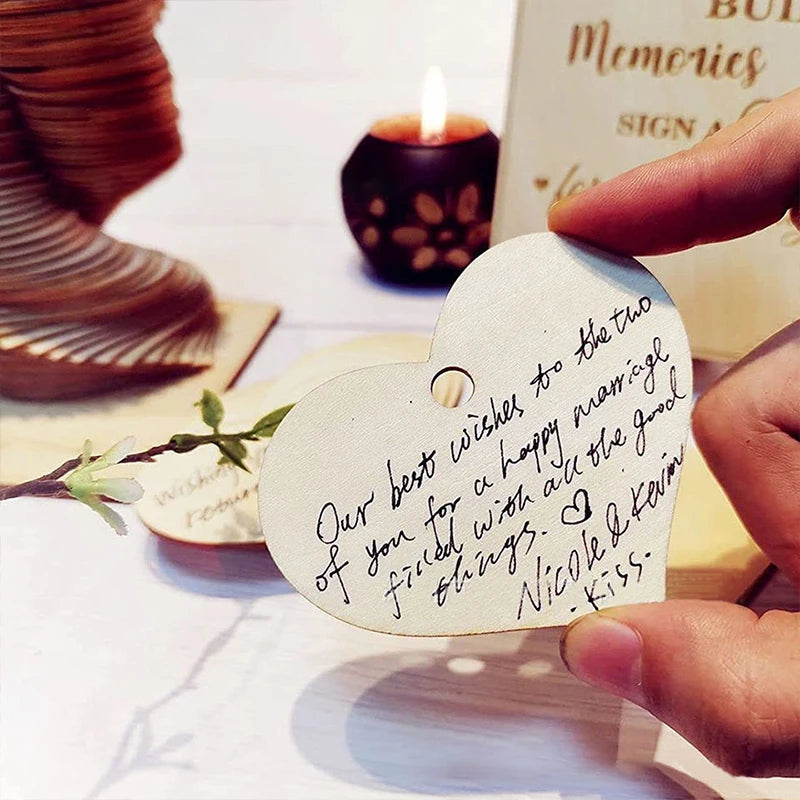 BUI
Memories
SIGN A
Our best wishes to the two
of you for a happy marriage
filled with all the good
things. ♡
Nicole & Kevin
. Kiss.
Wishing
return